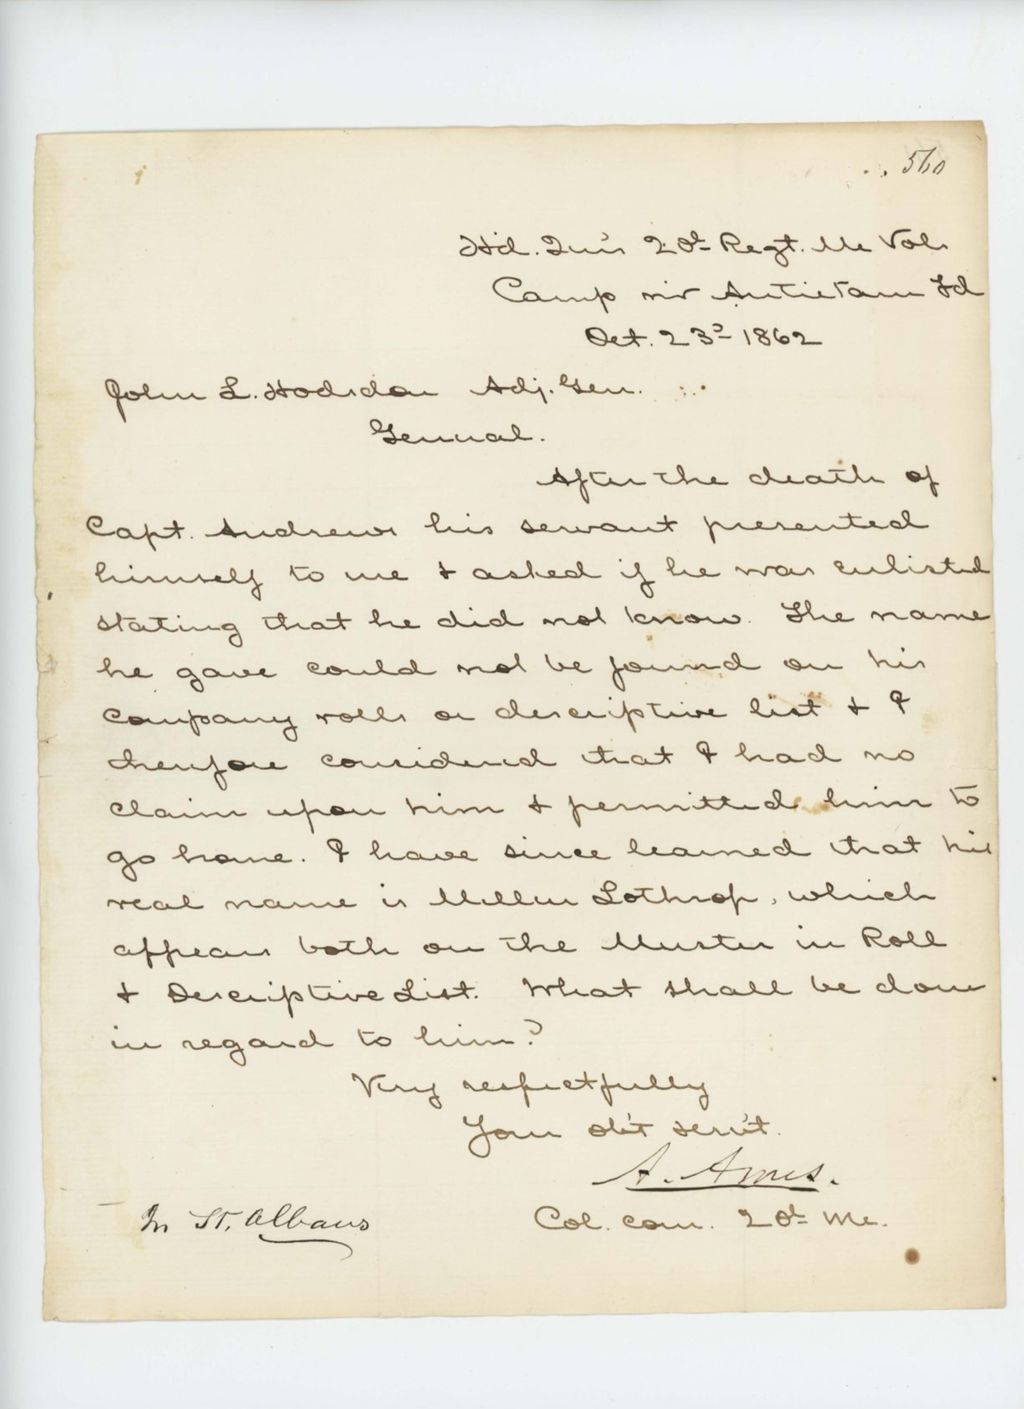 560
Hd. Qurs 20th Regt. Me Vols
Camp nr Antietam Fd
Oct. 23d 1862
John L. Hodsdon Adj. Gen.
General.
After the death of
Capt. Andrews his servant presented
himself to me & asked if he was enlisted
stating that he did not know. The name
he gave could not be found on his
company rolls or descriptive list & I
therefore considered that I had no
claim upon him & permitted him to
go home. I have since learned that his
real name is Lothrop, which
appears both on the Muster in Roll
& Descriptive List. What shall be done
in regard to him?
Very respectfully
Your ob't serv't.
A. Ames.
Col. com. 20th Me.
In St. Albans